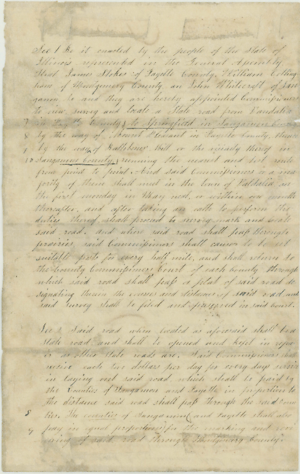 Sec 1 Be it enacted by the people of the State of
Illinois represented in the General Assembly
That James Stokes of Fayette County, William
of Montgomery County and John of San
gamon be and they are hereby appointed Commissioners
to view survey and locate a State road from Vandalia
in Fayette County to Springfield in Sangamon County
by the way of in Fayette County, thence
by the way of in the county thence in
Sangamon County, running the nearest and best route
from point to point. And said Commissioners or a ma-
jority of them shall meet in the town of Vandalia on
the first monday in may next, or within one month
thereafter, and after taking an oath
duties shall proceed to survey mark and locate
said road. And when said road shall pass through
prairies, said Commissioners shall cause to be set
suitable posts for every half mile, and shall return to
the County Commissioners Court of each county through
which said road shall pass a plat of said road de-
signating thereon the courses and distances of said road and
said survey shall be filed and preserved in said court.
Sec 2 Said road when located as aforesaid shall be a
State road and shall be opened and kept in repair
as other State roads are. Said Commissioners shall
receive each two dollars per day for every day
in laying out said road, which shall be paid by
the Counties of Sangamon and Fayette in proportion to
the distance said road shall pass through the said coun-
ties. The counties of Sangamon and Fayette shall also
pay in equal proportion for the marking and
of said road through Montgomery County